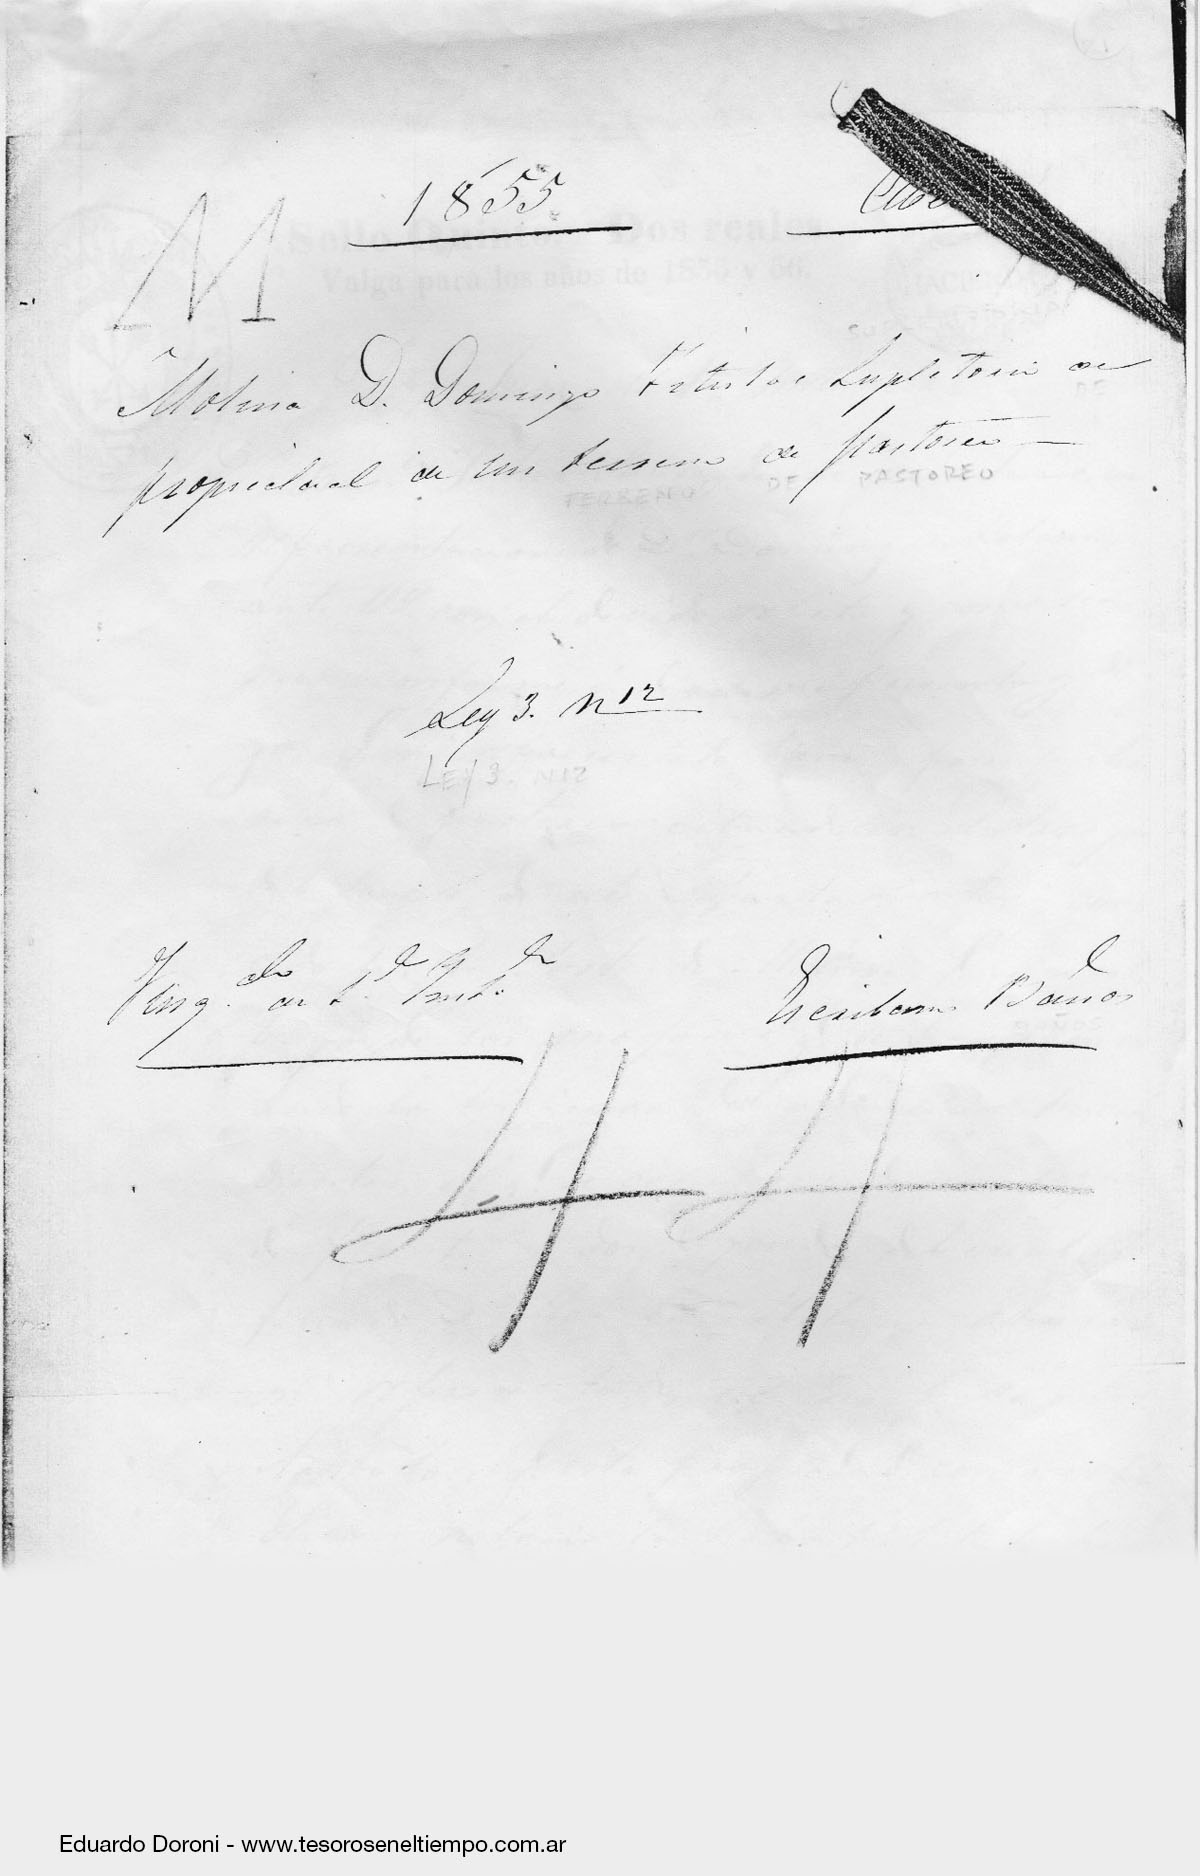 1855
M
Sello Quinto Dos reales
Valga para los años de 1855 y 56.
Molina D. Domingo Titulo Supletorio de
propiedad de un terreno de pastoreo
TERRENO DE PASTOREO
Ley 3. N 12
LEY 3. N12
Juzg.do de 1.a Inst.
Escribano Baños
44
Eduardo Doroni - www.tesoroseneltiempo.com.ar